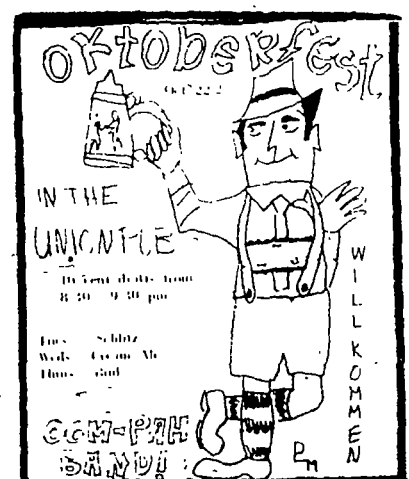 OKTOBERFEST
IN THE
10 cent drafts from
8:30 - 9:30 pm
Tues. Schlitz
Weds. Cream Ale
Thurs. Bud
OOM-PAH
BAND!
WILLKOMMEN